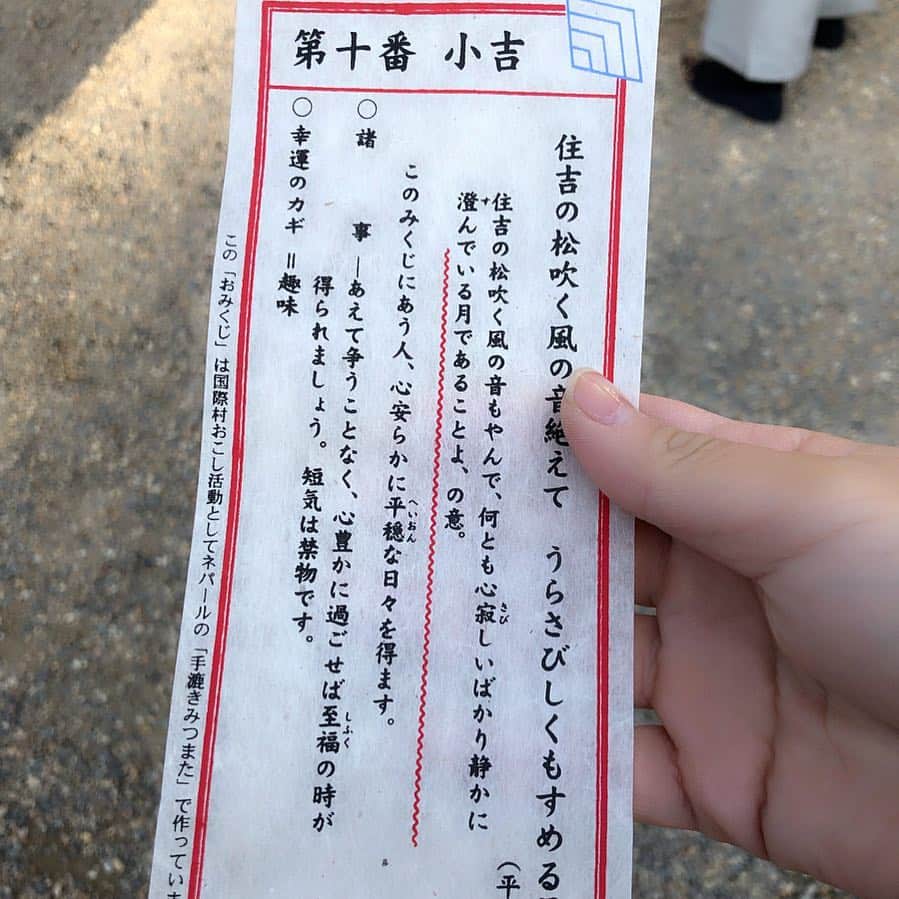 第十番 小吉
住吉の松吹く風の音絶えて うらさびしくもすめる
(平
住吉の松吹く風の音もやんで、何とも心寂しいばかり静かに
澄んでいる月であることよ、の意。
このみくじにあう人、心安らかに平穏な日々を得ます。
○諸 事―あえて争うことなく、心豊かに過ごせば至福の時が
得られましょう。短気は禁物です。
○幸運のカギ=趣味
この「おみくじ」は国際村おこし活動としてネパールの「手漉きみつまた」で作ってい